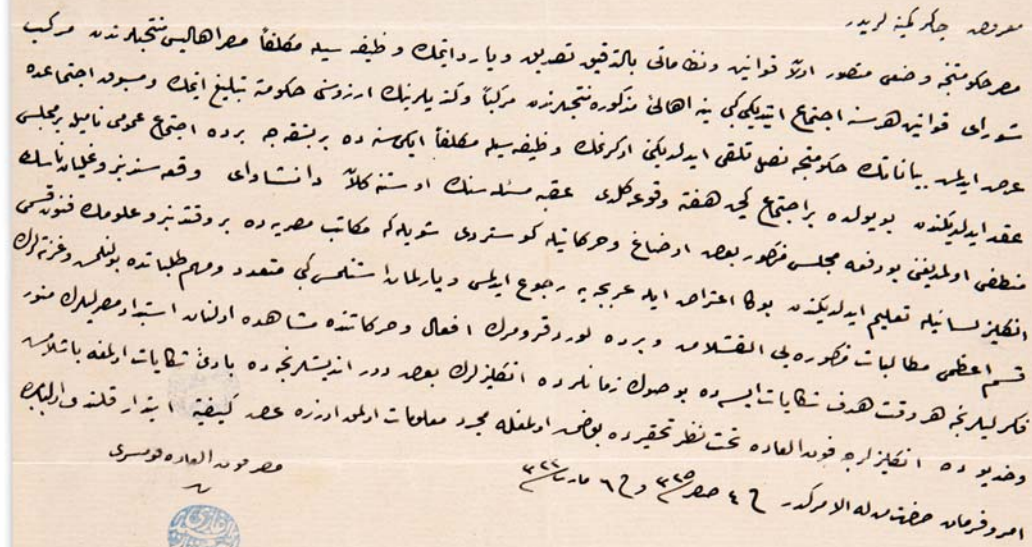 معروض چاكر كمينه لريدر
مصر حكومتنجه وضعى متصور اولان قوانين ونظاماتى بالتدقيق تصديق ويا رد ايتمك وظيفه سيله مكلفاً مصر اهاليسى منتخبلرندن مركب
شوراى قوانين هر سنه اجتماع ايتديكى كبى ينه اهالئ مذكوره منتخبلرندن مركباً وكنديلرينك ارزوسنى حكومته تبليغ ايتمك ومسبوق اجتماعده
عرض ايديلن بياناتك حكومتجه نصل تلقى ايدلديكنى اوكرنمك وظيفه سيله مكلفاً ايكى سنه ده بر بشقه جه برده اجتماع عمومى ناميله بر مجلس
عقد ايدلديكندن بو يولده بر اجتماع كچن هفته وقوعه كلدى عقبه مسئله سنك اوستنه كلان دانشاواى وقعه سندن غليان ناسك
منطفى اولمديغنى بو دفعه مجلس مذكور بعض اوضاع وحركاتيله كوستردى شويله كه مكاتب مصريه ده بر وقتدنبرو علومك فنون قسمى
انكليز لسانيله تعليم ايدلديكندن بوكا اعتراض ايله عربجه يه رجوع ايدلمسى وپارلمان استنلمسى كبى متعدد ومهم طلباتده بولنلمش وغزته لرك
قسم اعظمى مطالبات مذكوره يى القشلامش وبرده لورد قرومرك افعال وحركاتنده مشاهده اولنان استبداد مصرليلرك منور
فكرليلرنجه هر وقت هدف شكايات ايسه ده بو صوك زمانلرده انكليزلرك بعض دور انديشلرنجه ده بادئ شكايات اولمغه باشلامش
وخديو ده انكليزلرجه فوق العاده تحت نظر تحقيرده بولنمش اولمغله مجرد معلومات اولمق اوزره عرض كيفيته ابتدار قلندى اولبابده
امر وفرمان حضرت من له الامركدر فى ٤ صفر ٣٢٥ وفى ٦ مارت ٣٢٣
مصر فوق العاده قوميسرى